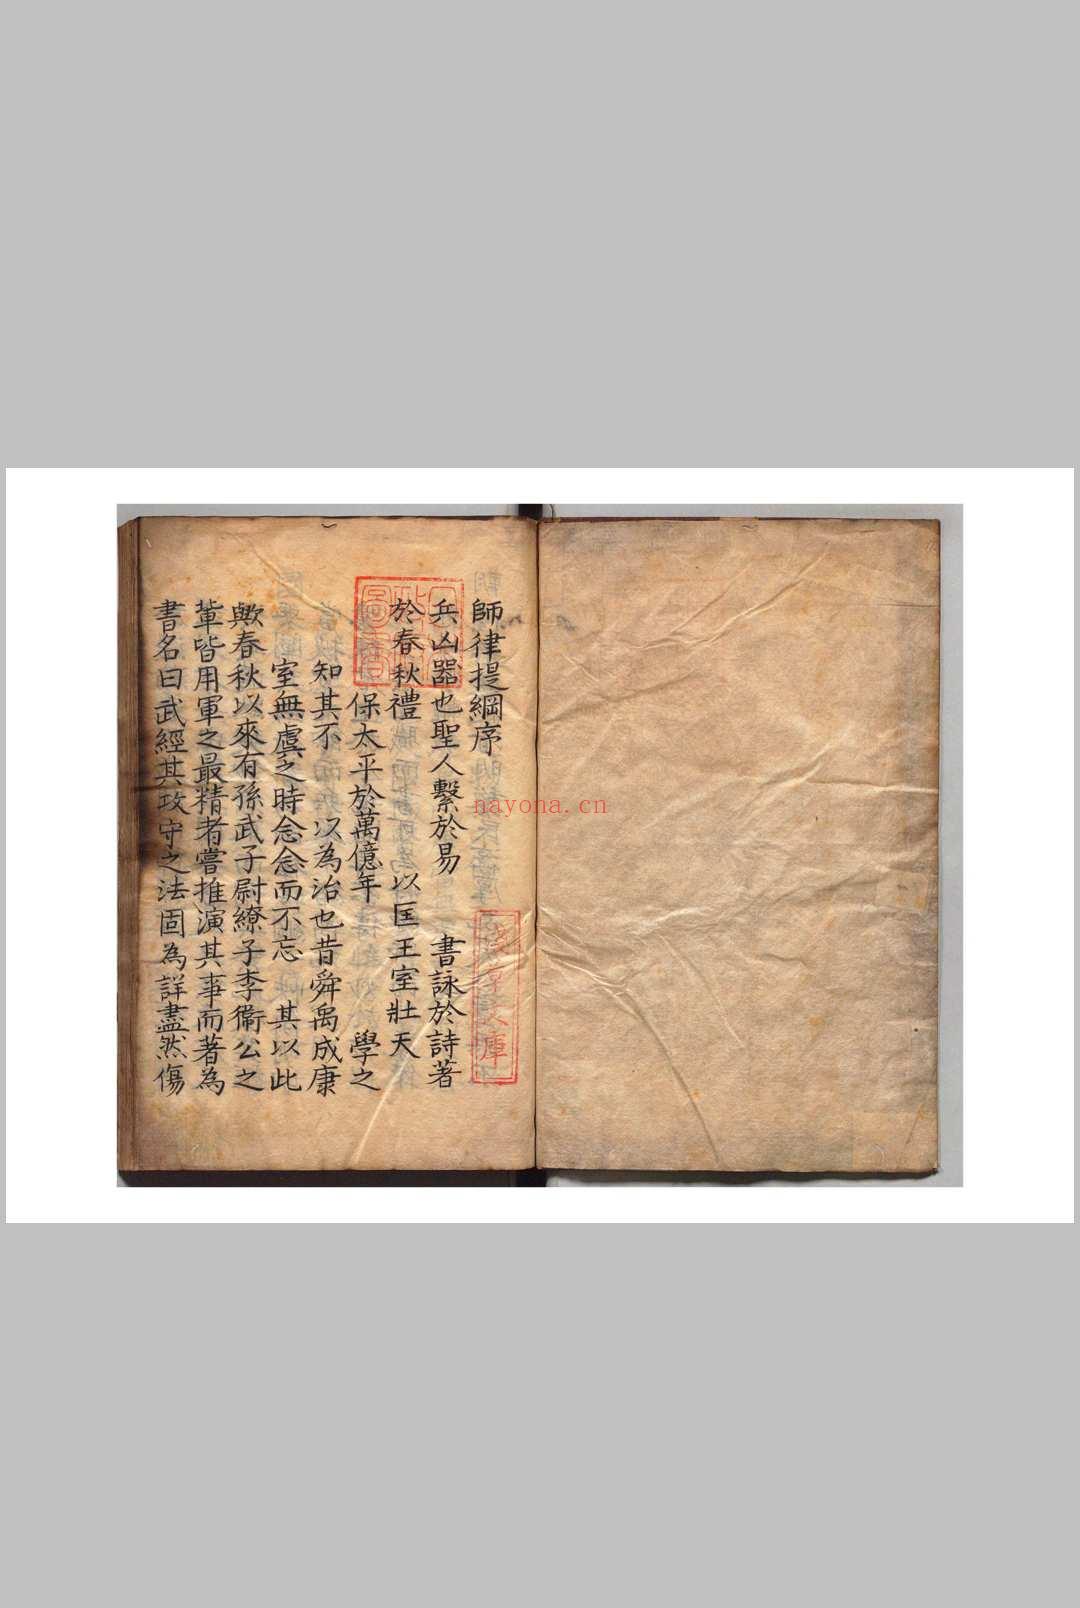 師律提綱序
兵凶器也聖人繫於易 書詠於詩著
於春秋禮 以匡王室壯天
保太平於萬億年 學之
知其不 以為治也昔舜禹成康
室無虞之時念念而不忘 其以此
歟春秋以來有孫武子尉繚子李衛公之
軰皆用軍之最精者嘗推演其事而著為
書名曰武經其攻守之法固為詳盡然傷
nayona.cn